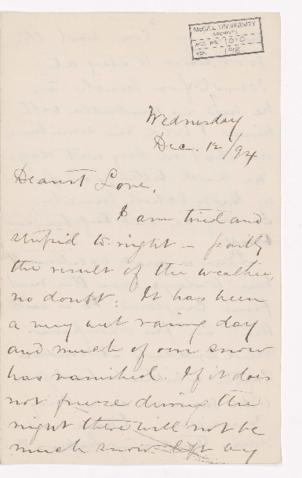 McGILL UNIVERSITY
ARCHIVES
ACC. NO. 1010
REF.
Wednesday
Dec. 12/94
Dearest Love,
I am tired and
stupid to-night – partly
the result of the weather,
no doubt: It has been
a very wet rainy day
and much of our snow
has vanished. If it does
not freeze during the
night there will not be
much snow left by